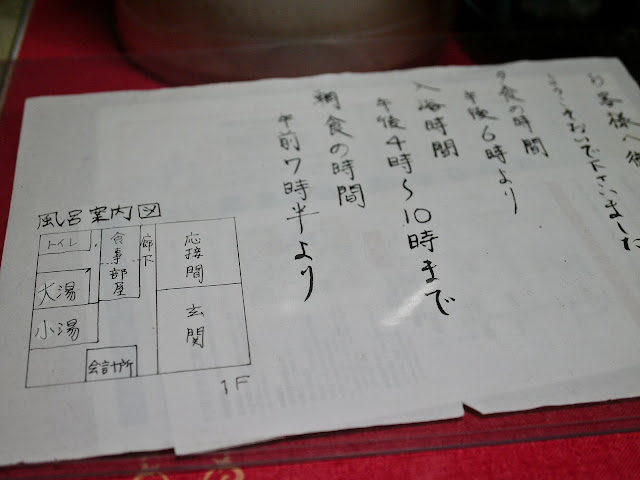 お客様へ御
ようこそおいで下さいました
夕食の時間
午後6時より
入浴時間
午後4時〜10時まで
朝食の時間
午前7時半より
風呂案内図
トイレ
大湯
小湯
食事部屋
廊下
応接間
玄関
会計所
1F